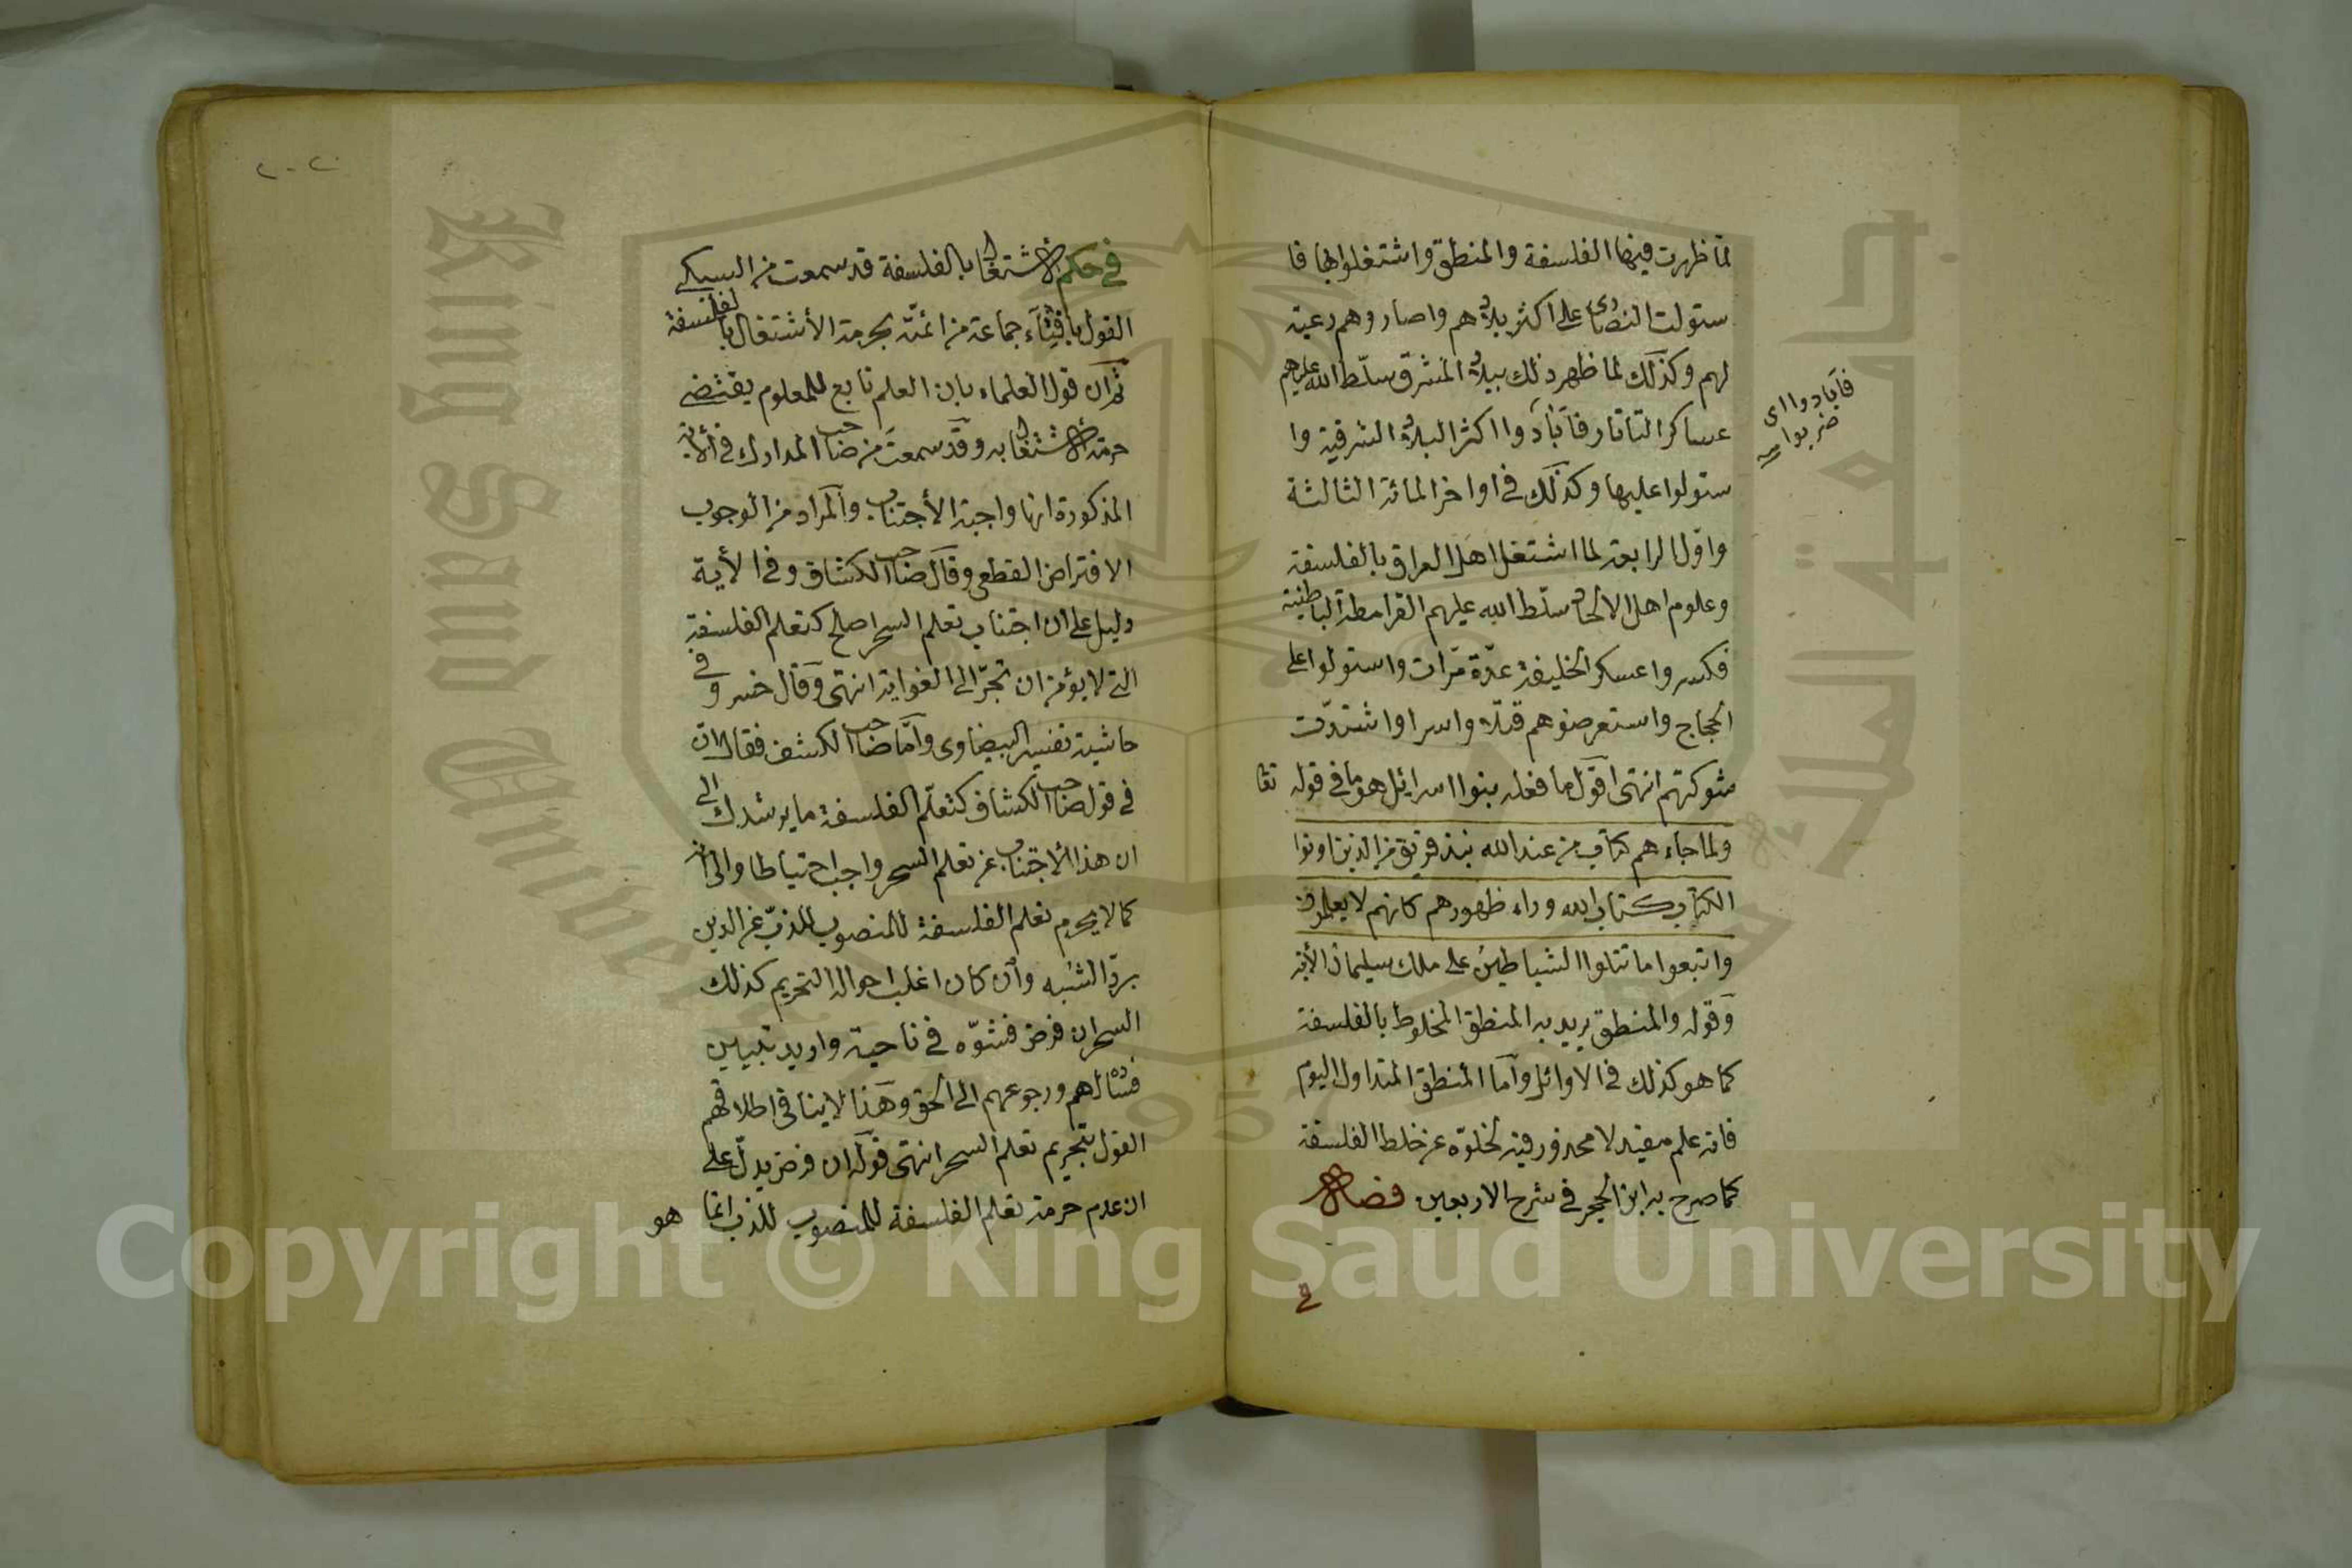 لمّا ظهرت فيها الفلسفة والمنطق واشتغلوا بها فا
ستولت النصارى على اكثر بلادهم واصاروهم رعية
لهم وكذلك لما ظهر ذلك ببلاد المشرق سلّط الله عليهم
عساكر التاتار فآبادوا اكثر البلاد الشرقية وا
ستولوا عليها وكذلك في اواخر المائة الثالثة
واوّل الرابعة لما اشتغل اهل العراق بالفلسفة
وعلوم اهل الالحاد سلّط الله عليهم القرامطة الباطنية
فكسروا عسكر الخليفة عدّة مرّات واستولوا على
الحجاج واستعرضوهم قتلا واسرا واشتدّت
شوكتهم انتهى اقول ما فعله بنوا اسرائل هو ما في قوله تعا
ولما جاءهم كتاب من عند الله نبذ فريق من الذين اوتوا
الكتاب كتاب الله وراء ظهورهم كانهم لا يعلمون
واتبعوا ما تتلوا الشياطين على ملك سليمان الأية
وقوله والمنطق يريد به المنطق المخلوط بالفلسفة
كما هو كذلك في الاوائل واما المنطق المتداول اليوم
فانه علم مفيد لا محذور فيه لخلوّه عن خلط الفلسفة
كما صرح به ابن الحجر في شرح الاربعين فصل
فآبادوا اى
ضربوا
٢٠٢
في حكم الاشتغال بالفلسفة قد سمعت من السبكي
القول بافتاء جماعة من ائمّته بحرمة الأشتغال بالفلسفة
ثم ان قول العلماء بان العلم تابع للمعلوم يقتضى
حرمة الاشتغال به وقد سمعت من صاحب المدارك في الأية
المذكورة انها واجبة الأجتناب والمراد من الوجوب
الافتراض القطعى وقال صاحب الكشاف وفي الأية
دليل على ان اجتناب تعلم السحر اصلح كتعلم الفلسفة
التى لا يؤمن ان تجرّ الى الغواية انتهى وقال خسرو في
حاشية تفسير البيضاوى وامّا صاحب الكشف فقال ان
في قول صاحب الكشاف كتعلّم الفلسفة ما يرشدك الى
ان هذا الأجتناب عن تعلم السحر واجب احتياطا والى انه
كما لا يحرم تعلم الفلسفة للمنصوب للذبّ عن الدين
بردّ الشبه وان كان اغلب احواله التحريم كذلك
السحر ان فرض فشوّه في ناحية واريد تبيين
فساده لهم ورجوعهم الى الحق وهذا لا ينافى اطلاقهم
القول بتحريم تعلم السحر انتهى قوله ان فرض يدلّ على
ان عدم حرمة تعلم الفلسفة للمنصوب للذب انما هو
جامعة الملك سعود
King Saud University
1957
Copyright © King Saud University